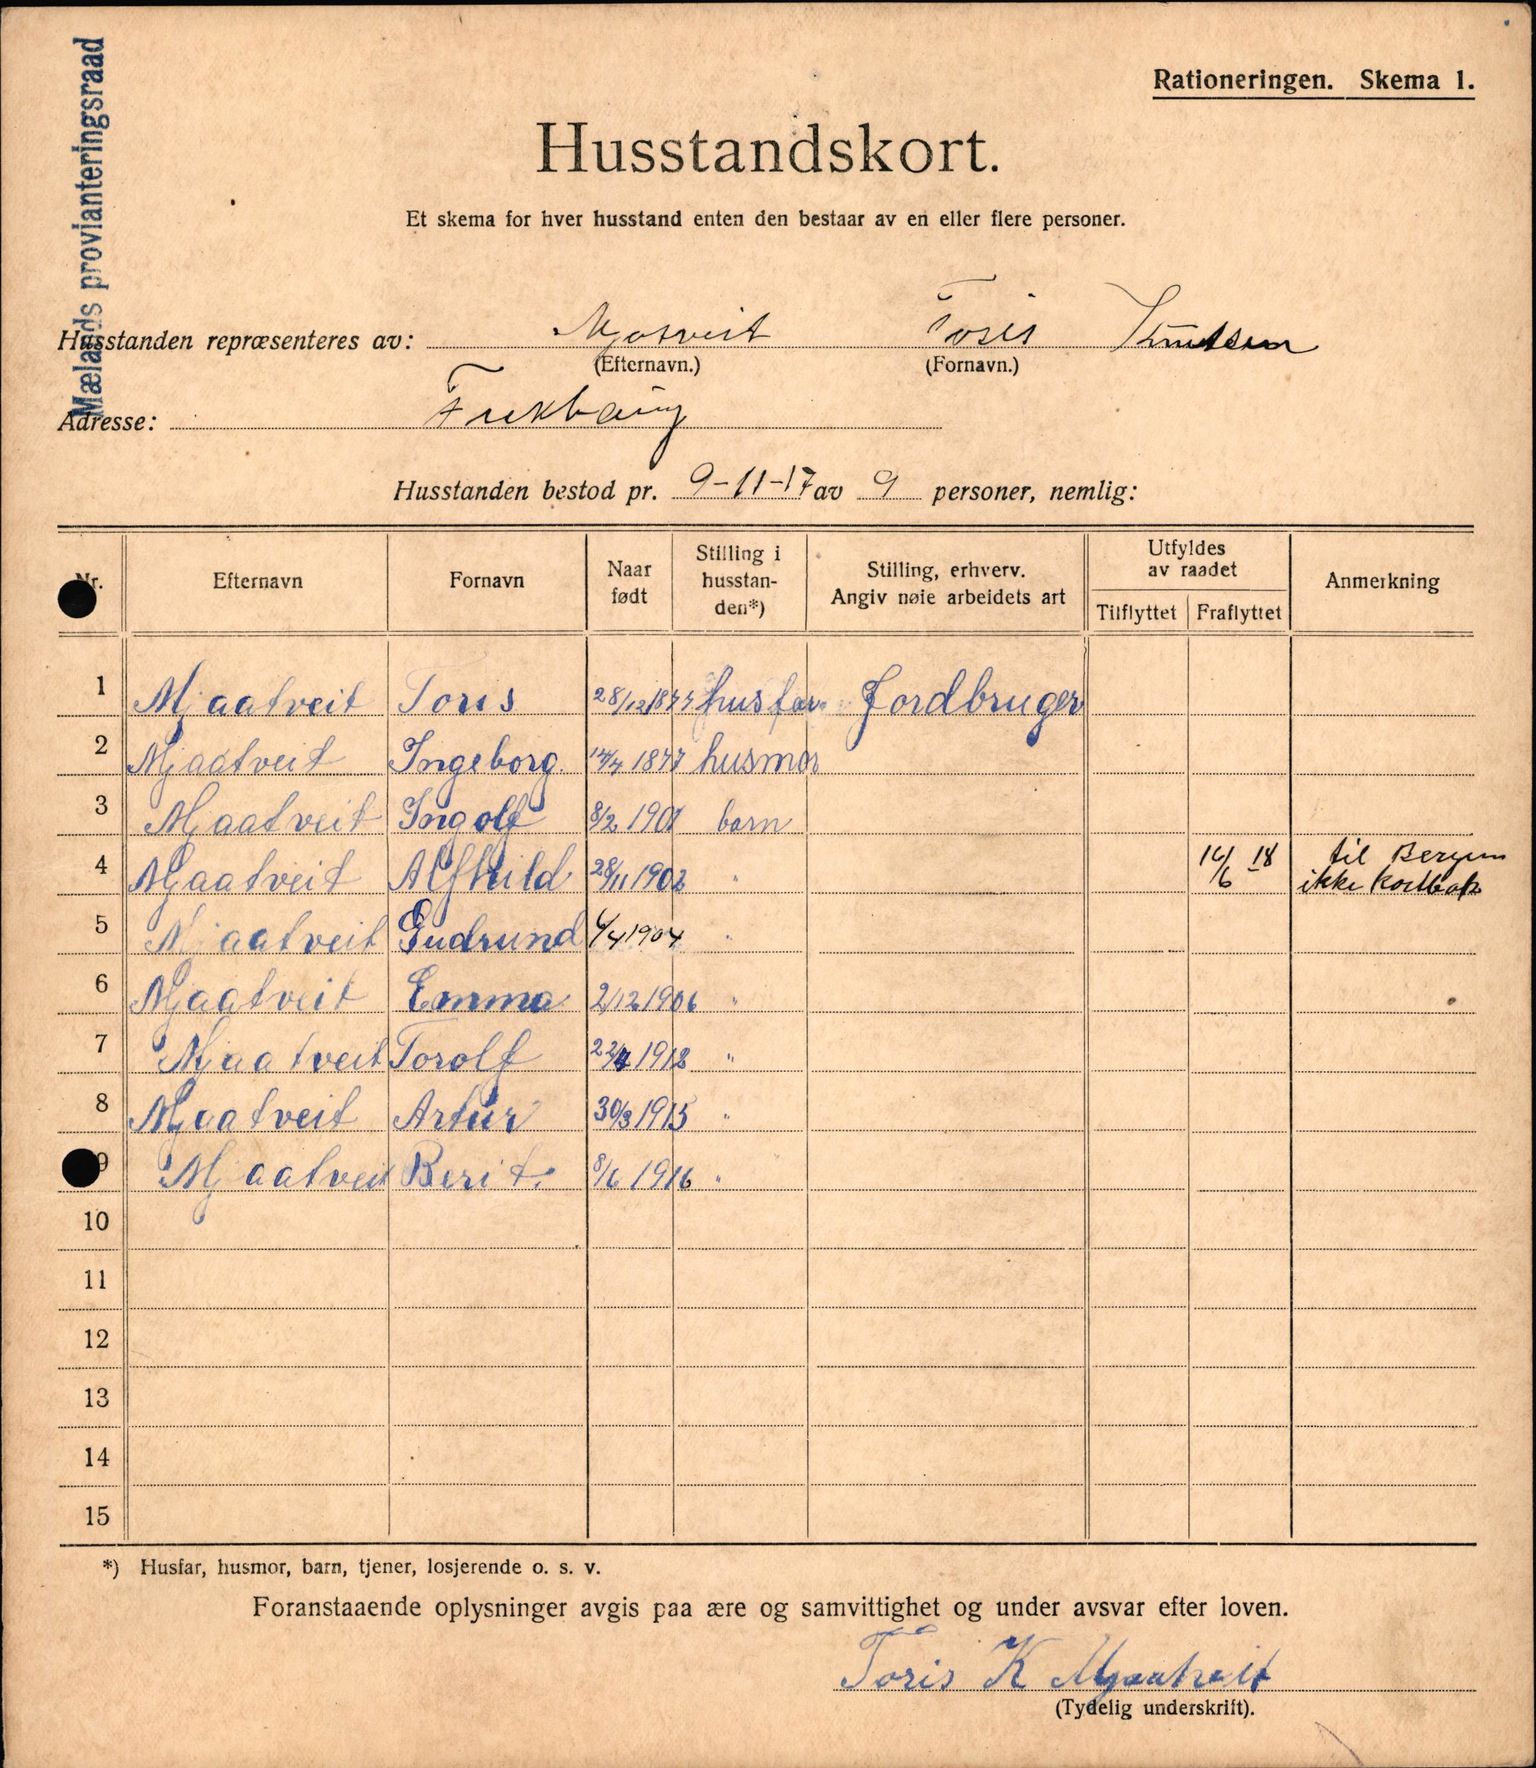 Mælands provianteringsraad
Rationeringen. Skema 1.
Husstandskort.
Et skema for hver husstand enten den bestaar av en eller flere personer.
Husstanden repræsenteres av: Mjatveit Toris Knutsen
(Efternavn.) (Fornavn.)
Adresse:
Husstanden bestod pr. 9-11-17 av 9 personer, nemlig:
Nr. Efternavn Fornavn Naar født Stilling i husstan-den*) Stilling, erhverv. Angiv nøie arbeidets art Utfyldes av raadet Tilflyttet Fraflyttet Anmerkning
1 Mjaatveit Toris 28/12 1877 husfar Jordbruger
2 Mjaatveit Ingeborg 1877 husmor
3 Mjaatveit Ingolf 8/2 1901 barn
4 Mjaatveit Alfhild 28/11 1902 " 16/6 18 til Bergen ikke kortbok
5 Mjaatveit Gudrund 6/4 1904 "
6 Mjaatveit Emma 2/12 1906 "
7 Mjaatveit Torolf 1912 "
8 Mjaatveit Artur 30/3 1915 "
9 Mjaatveit Berit. 8/6 1916 "
10
11
12
13
14
15
*) Husfar, husmor, barn, tjener, losjerende o. s. v.
Foranstaaende oplysninger avgis paa ære og samvittighet og under avsvar efter loven.
Toris K Mjaatveit
(Tydelig underskrift).